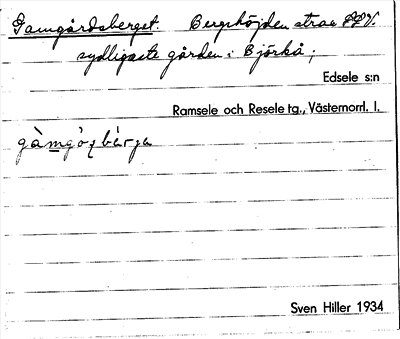 Gamgårdsberget. Bergshöjden strax SSV.
sydligaste gården i Björkå;
Edsele s:n
Ramsele och Resele tg., Västernorrl. l.
Sven Hiller 1934